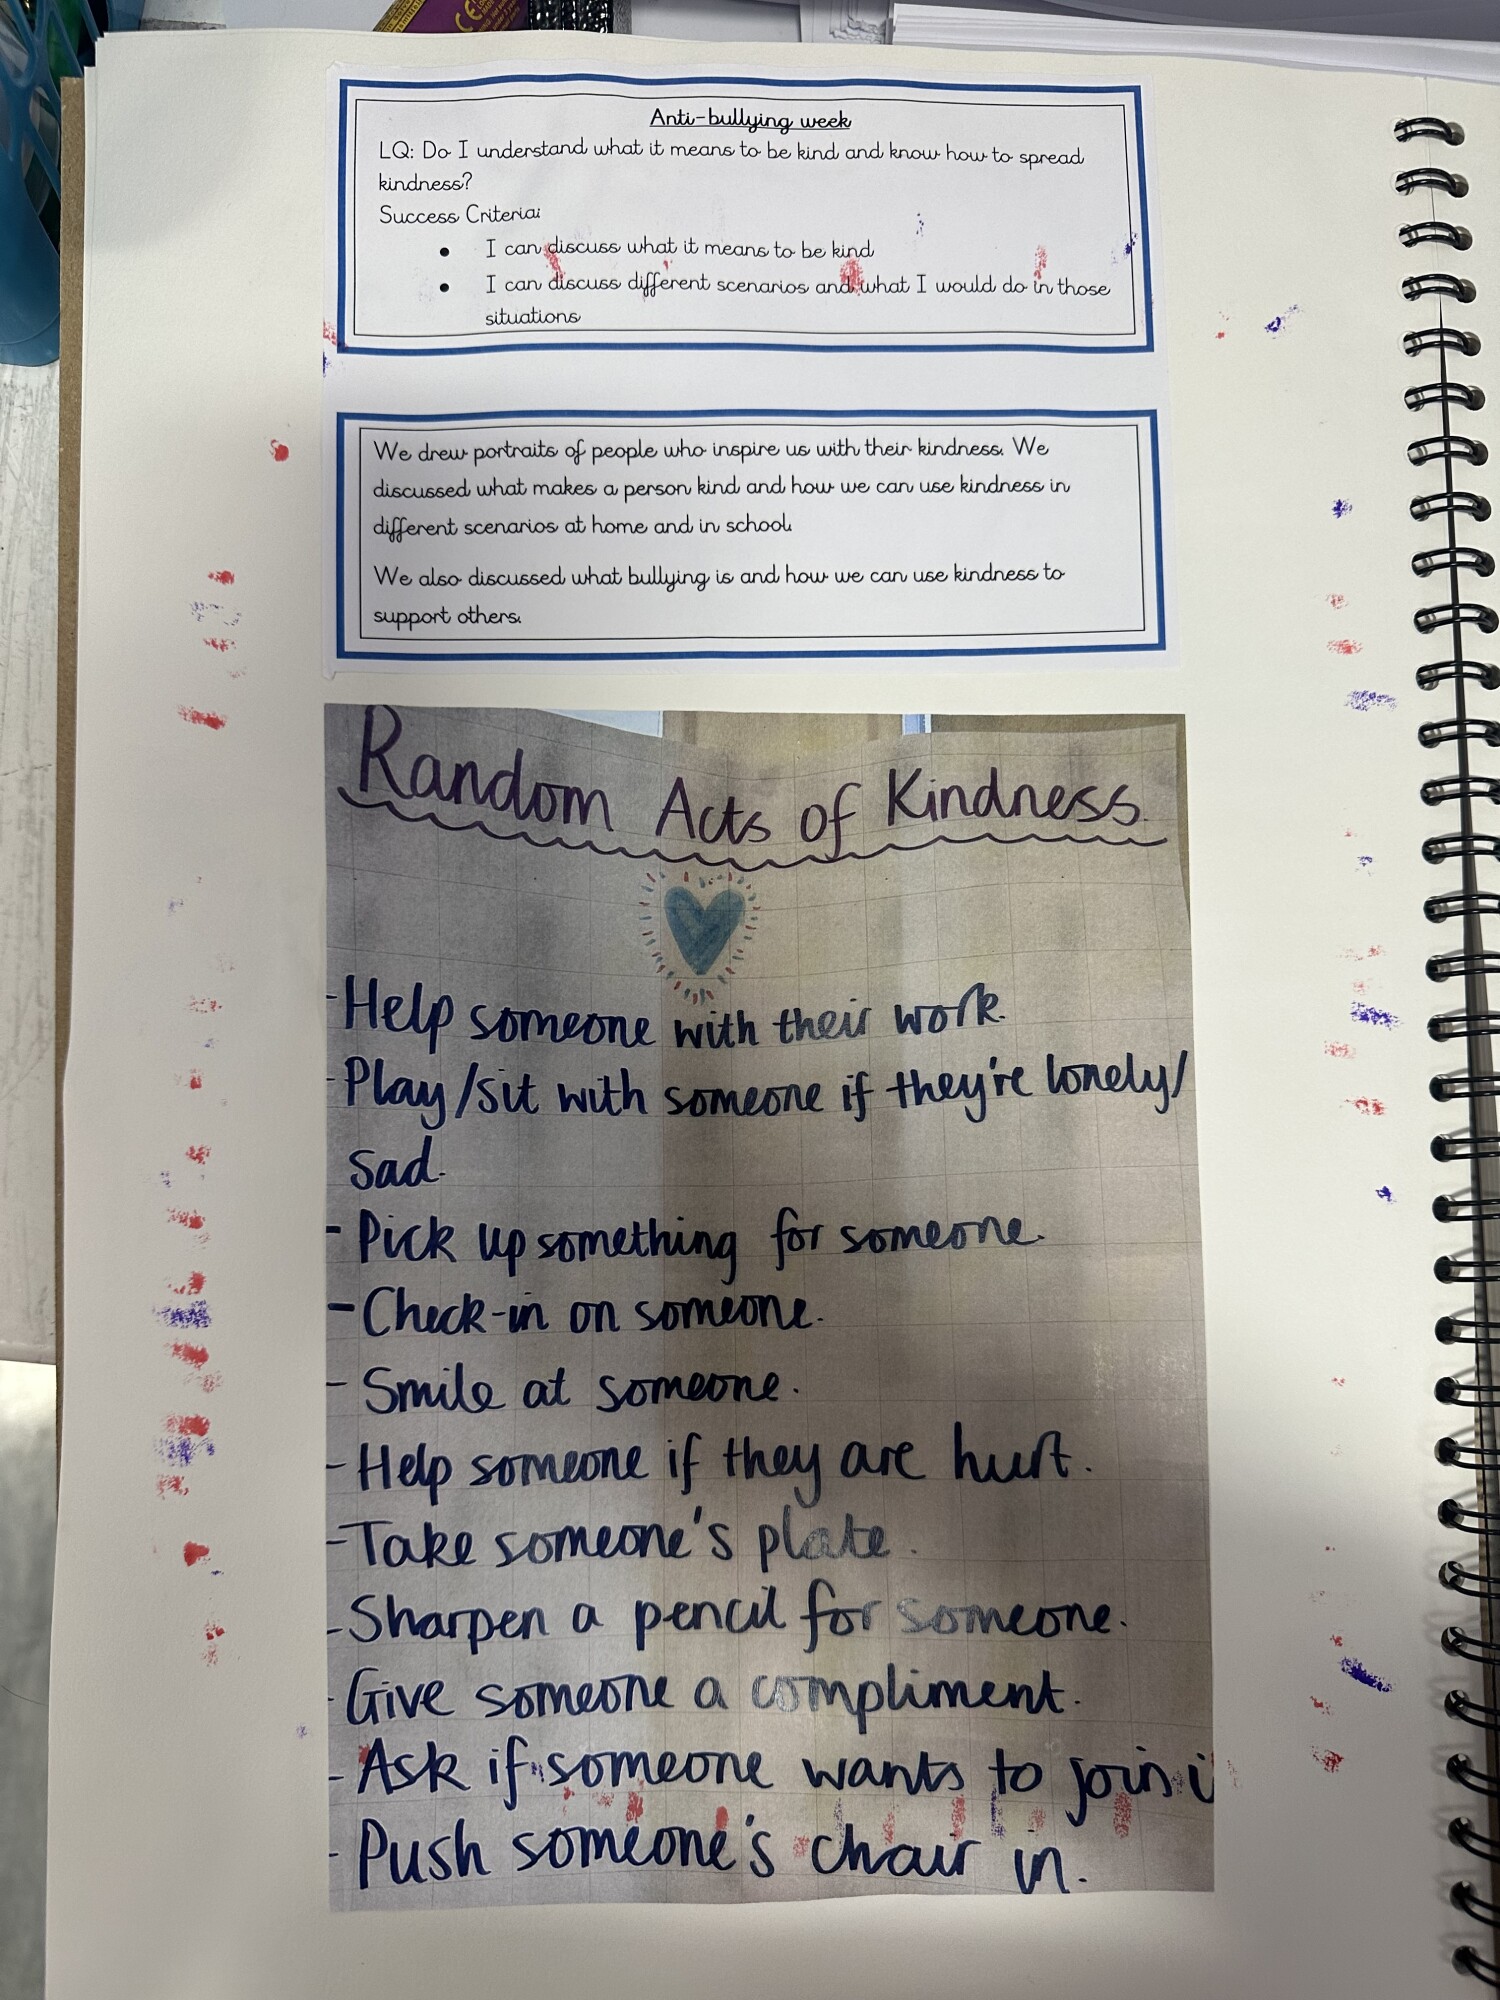 Anti-bullying week
LQ: Do I understand what it means to be kind and know how to spread
kindness?
Success Criteria:
• I can discuss what it means to be kind
• I can discuss different scenarios and what I would do in those
situations
We drew portraits of people who inspire us with their kindness. We
discussed what makes a person kind and how we can use kindness in
different scenarios at home and in school.
We also discussed what bullying is and how we can use kindness to
support others.
Random Acts of Kindness.
- Help someone with their work.
- Play/sit with someone if they're lonely/
sad.
- Pick up something for someone.
- Check-in on someone.
- Smile at someone.
- Help someone if they are hurt.
- Take someone's plate.
- Sharpen a pencil for someone.
- Give someone a compliment.
- Ask if someone wants to join i
- Push someone's chair in.